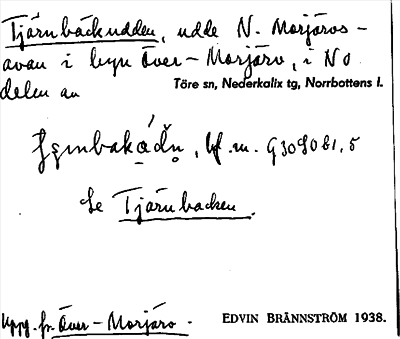 Tjärnbäckudden, udde N. Morjärvs-
avan i byn Över-Morjärv, i NO
delen av
Töre sn, Nederkalix tg, Norrbottens l.
bf. m. G309081,5
Se Tjärnbacken.
Uppg. fr. Över-Morjärv.
EDVIN BRÄNNSTRÖM 1938.